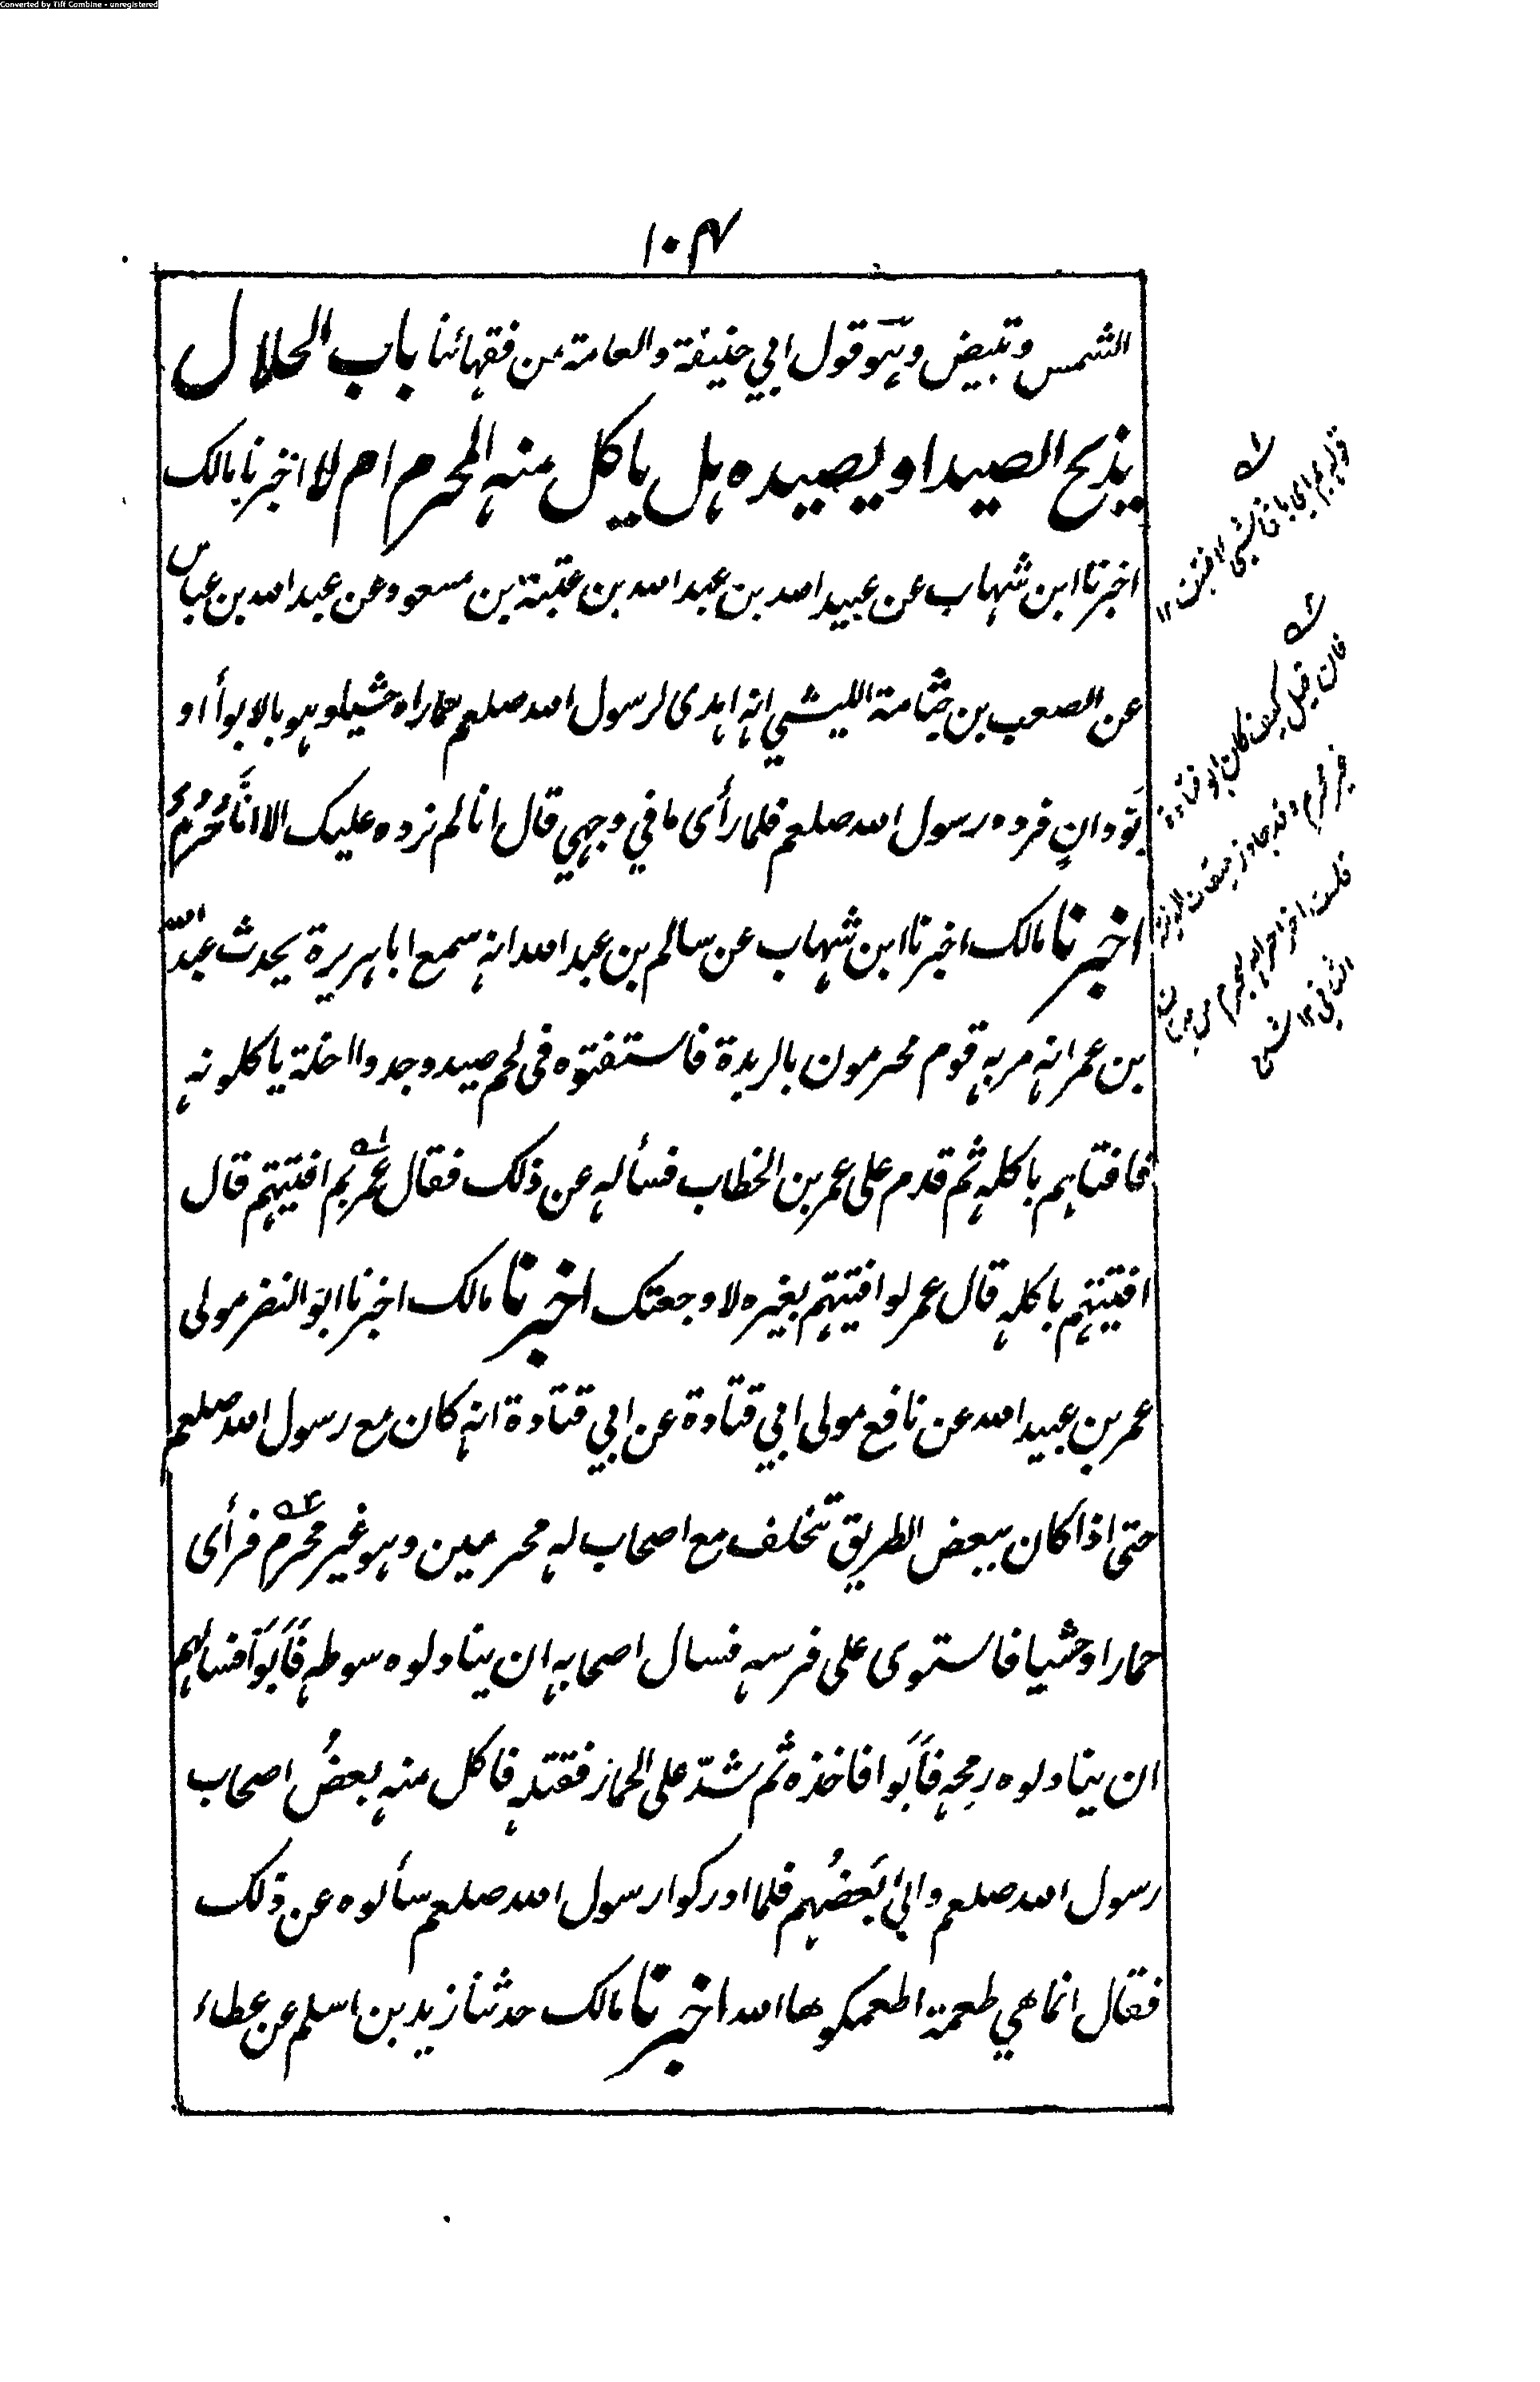 Converted by Tiff Combine - unregistered
۱۰۴
الشمس وتبيض وہو قول ابي حنيفة والعامة من فقہائنا باب الحلال
يذبح الصيد او يصيده ہل يا كل منہ المحرم ام لا اخبرنا مالك
اخبرنا ابن شہاب عن عبيد الله بن عبد الله بن عتبة بن مسعود عن عبد الله بن عباس
عن الصعب بن جثامة الليثي انہ اہدى لرسول الله صلعم حمارا وحشيا وہو بالابواء او
بَوَدانٍ فرده رسول الله صلعم فلما رأى ما في وجہي قال انا لم نرده عليك الا انَّا حُرُمٌ
اخبرنا مالك اخبرنا ابن شہاب عن سالم بن عبد الله انہ سمع ابا ہريرة يحدث عبد الله
بن عمر انہ مر بہ قوم محرمون بالربذة فاستفتوه فى لحم صيد وجدوا احلة يا كلونہ
فافتاہم باكلہ ثم قدم على عمر بن الخطاب فسألہ عن ذلك فقال عمر بم افتيتہم قال
افتيتہم باكلہ قال عمر لو افتيتہم بغيره لاوجعتك اخبرنا مالك اخبرنا ابو النضر مولى
عمر بن عبيد الله عن نافع مولى ابي قتادة عن ابي قتادة انہ كان مع رسول الله صلعم
حتى اذا كان ببعض الطريق تخلف مع اصحاب لہ محرمين وہو غير محرم فرأى
حمارا وحشيا فاستوى على فرسہ فسال اصحابہ ان يناولوه سوطہ فَاَبَوْا فسالہم
ان يناولوه رمحہ فَاَبَوا فاخذه ثم شدّ على الحمار فقتلہ فاكل منہ بعضُ اصحاب
رسول الله صلعم وابىٰ بَعضُہم فلما ادركوا رسول الله صلعم سألوه عن ذلك
فقال انما هي طعمة اطعمكموها الله اخبرنا مالك حدثنا زيد بن اسلم عن عطاء
فان قيل كيف كان ابو قتادة
غير محرم وقد جاوز ميقات المدينة